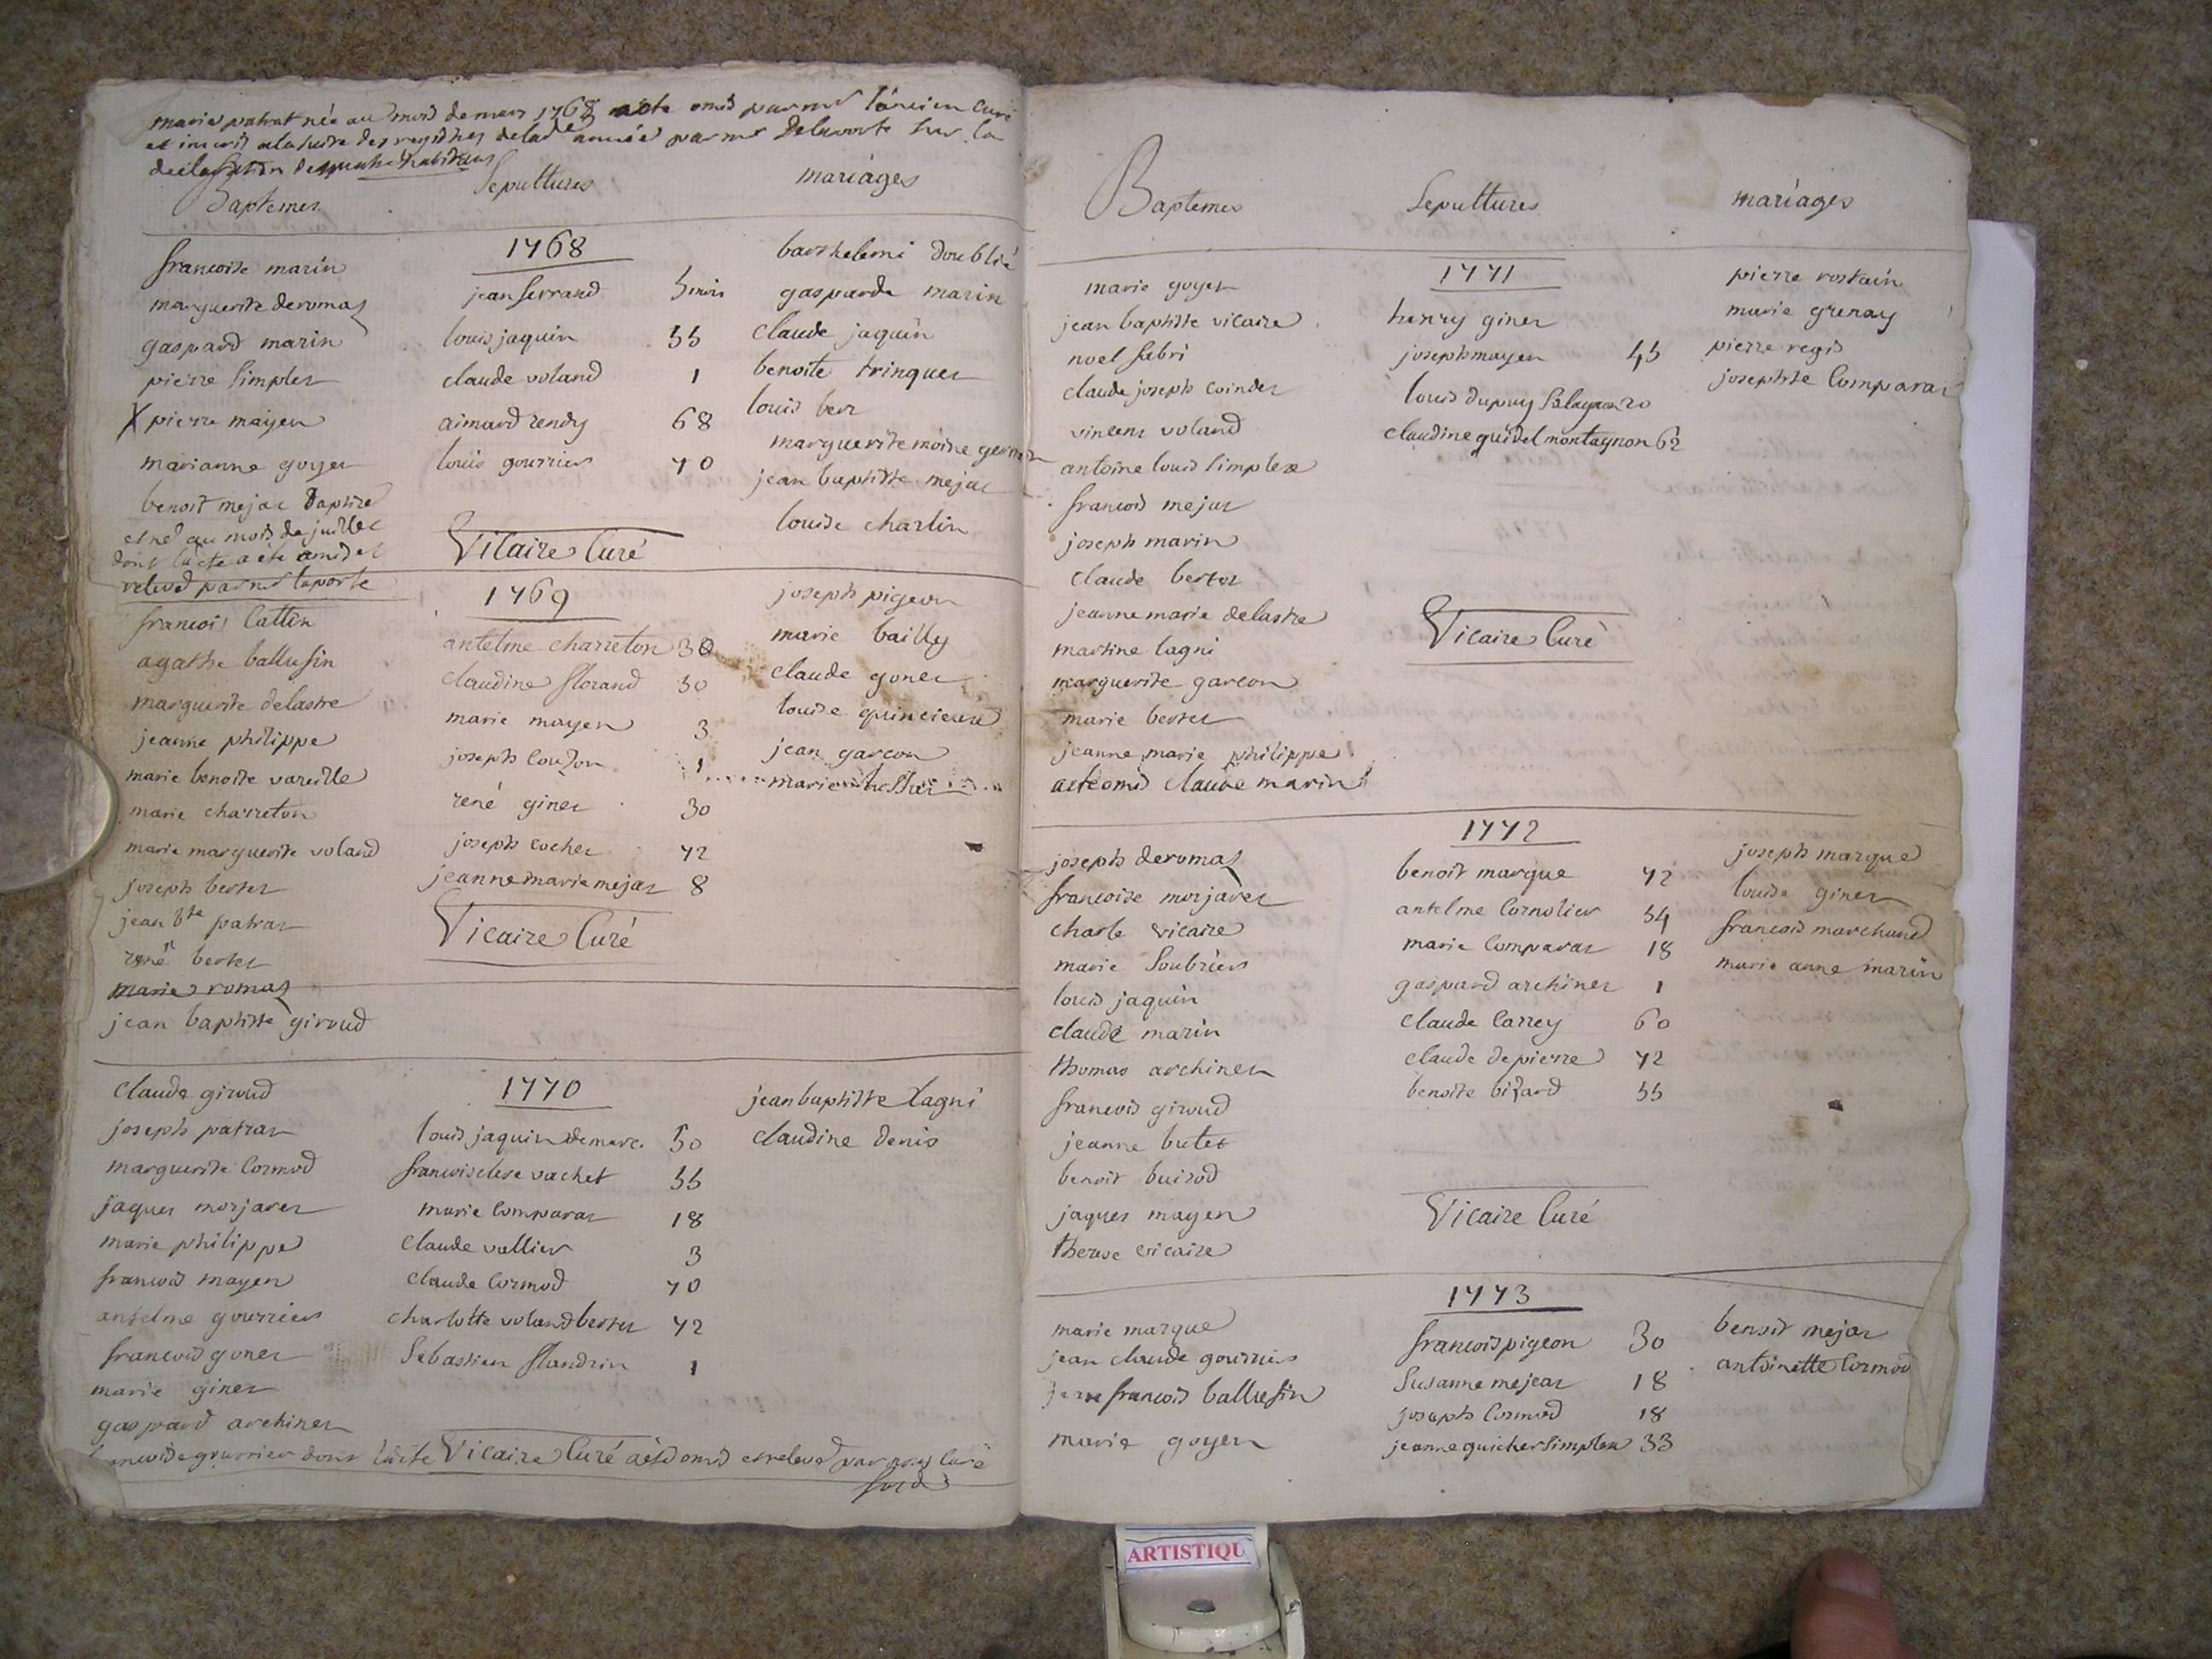 marie patrat née au mois de mars 1768 acte omis par mr l'ancien curé
et inscrit a la suite des registres de lad année par mr Delaporte sur la
Baptemes
Sepultures
mariages
1768
francoise marin
marguerite deromas
gaspard marin
pierre simplex
X pierre mayen
marianne goyet
benoit mejat Baptise
et né au mois de juillet
dont lacte a été omis et
relevé par mr laporte
jean ferrand
louis jaquin 55
claude voland 1
aimard rendy 68
louis gourrier 70
Vicaire Curé
barthelemi doublié
gasparde marin
claude jaquin
benoite trinquet
louis
marguerite moine
jean baptiste mejat
louise charlin
1769
francois Cattin
agathe ballufin
marguerite delastre
jeanne philippe
marie benoite vareille
marie charreton
marie marguerite voland
joseph bertet
jean bte patrat
rené bertet
marie romas
jean baptiste giroud
antelme charreton 30
claudine florand 30
marie mayen 3
joseph 1
rené ginet 30
joseph cochet 72
jeanne marie mejat 8
Vicaire Curé
joseph pigeon
marie bailly
claude gonet
louise quincieux
jean garcon
marie
1770
claude giroud
joseph patrat
marguerite Cormod
jaques morjaret
marie philippe
francois mayen
antelme gourrier
francois gonet
marie ginet
gaspard archinet
louis jaquin demarc. 50
vachet 55
marie Comparat 18
claude vallier 3
claude Cormod 70
charlotte voland bertet 72
Sebastien flandrin 1
jean baptiste Lagni
claudine denis
gourrier dont lacte Vicaire Curé a été omis et relevé par curé
Baptemes
Sepultures
mariages
1771
marie goyet
jean baptiste vicaire
noel fabri
claude joseph Coindet
vincent voland
antoine louis simplex
francois mejat
joseph marin
claude bertet
jeanne marie delastre
martine lagni
marguerite garcon
marie bertet
jeanne marie philippe
acte omis claude marin
henry ginet
joseph mayen 45
louis dupuy 20
claudine quidel montagnon 62
Vicaire Curé
pierre rostain
marie grenay
pierre regis
josephte Comparat
1772
joseph deromas
francoise morjaret
charle vicaire
marie Soubrier
louis jaquin
claude marin
thomas archinet
francois giroud
jeanne butet
benoit buisod
jaques mayen
therese vicaire
benoit marque 72
antelme Cornolier 54
marie Comparat 18
gaspard archinet 1
claude Carrey 60
claude depierre 72
benoite bizard 55
Vicaire Curé
joseph marque
louise ginet
francois marchand
marie anne marin
1773
marie marque
jean claude gourrier
jean francois ballufin
marie goyet
francois pigeon 30
Susanne mejat 18
joseph Cormod 18
jeanne guichet simplex 33
benoit mejat
antoinette Cormod
ARTISTIQU